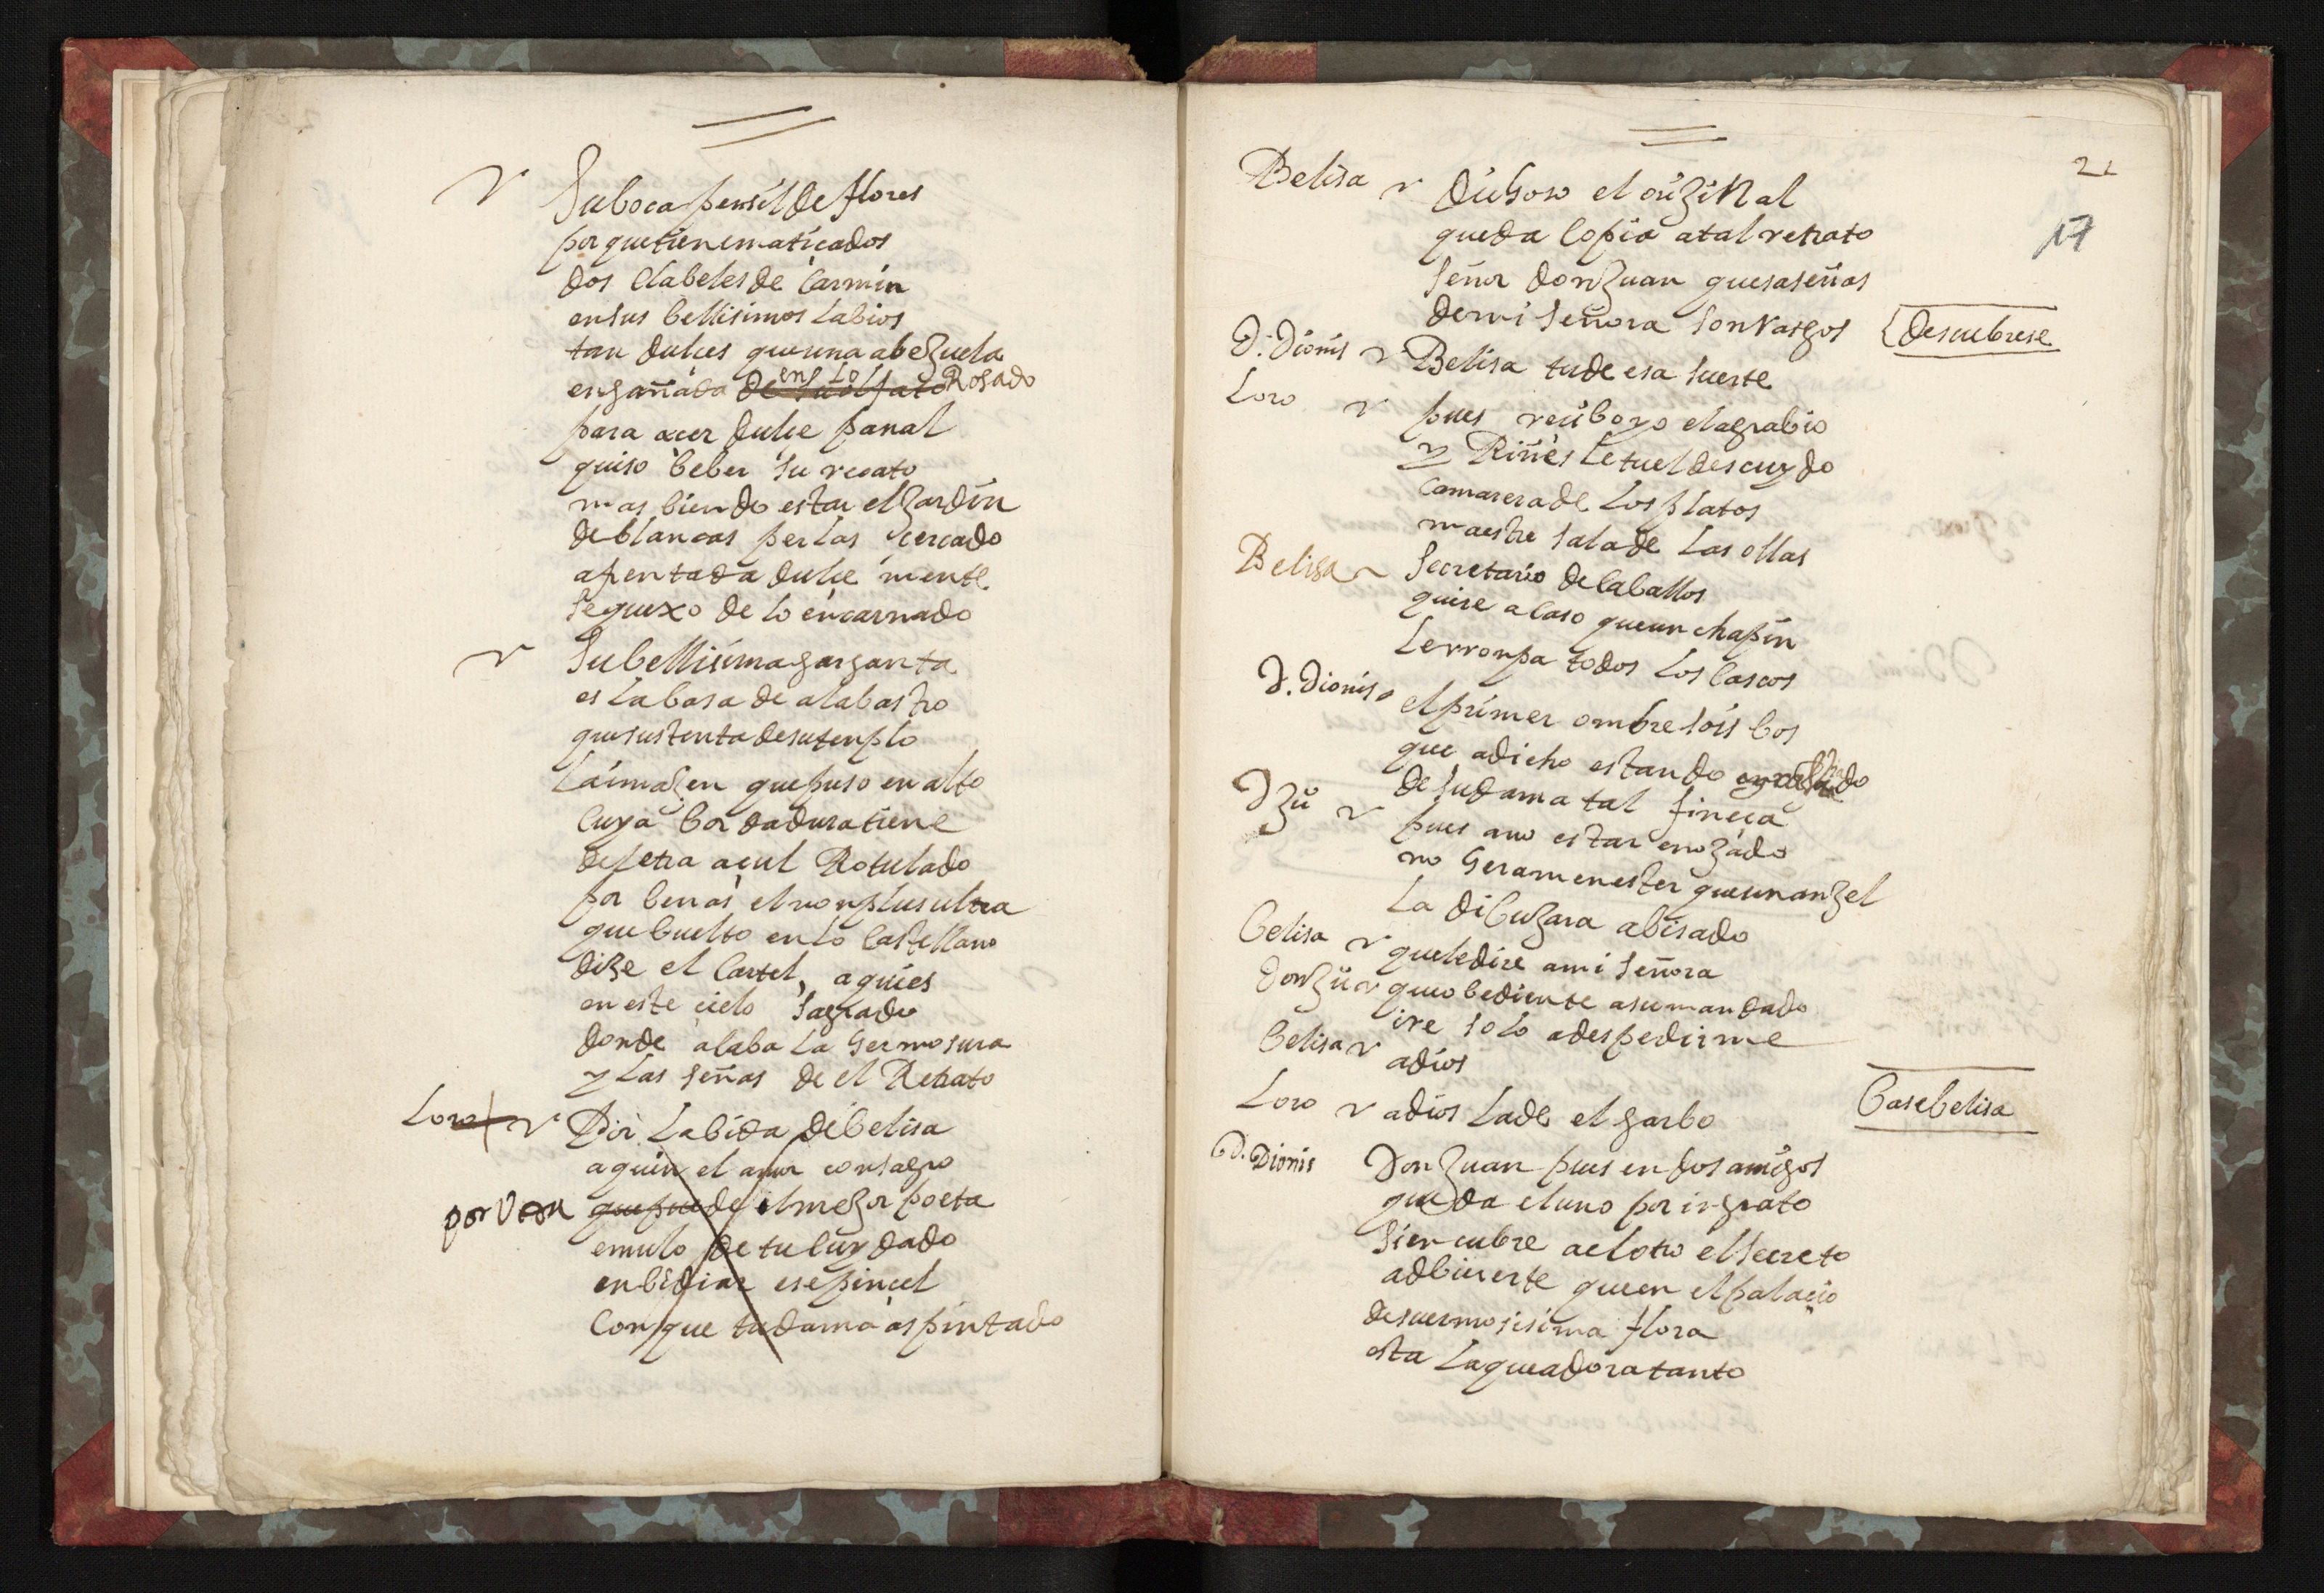 Su boca pensil de flores
por que tiene maticados
dos Clabeles de Carmin
en sus bellisimos Labios
tan dulces que una abeZuela
engañada de su olfato en Lo Rosado
para acer dulce panal
quiso beber su recato
mas biendo estar el Zardin
de blancas perlas cercado
afrentada dulce mente
se quexo de lo encarnado
Su bellisima garganta
es La basa de alabastro
que sustenta de su templo
La imaZen que puso en alto
Cuya bordadura tiene
de letra açul Rotulado
por benas el non plus ultra
que buelto en lo Castellano
diZe el Cartel, aqui es
en este cielo Sagrado
donde alaba La Germosura
y Las señas de el Retrato
Loro Por La bida de belisa
a quien el amor consagro
por Ver que puede el meZor poeta
emulo de tu Cuydado
enbidiar ese pincel
Con que tu dama as pintado
21
17
Belisa Dichoso el oriZinal
queda Copia a tal retrato
Señor don Zuan que sas señas
de mi Señora son Rasgos
Descubrese
D. Dionis Belisa tu de esa suerte
Loro pues recibo yo el agrabio
y Riñesle tu el descuydo
camarera de Los platos
maestre sala de Las ollas
Belisa Secretario de Caballos
quiere a Caso que un chapin
Le rronpa todos Los Cascos
D. Dionis el primer ombre sois bos
que a dicho estando
de su dama tal fineça
D Zu pues a no estar enoZado
no Gera menester que un anZel
La dibuZara abisado
belisa que le dire a mi Señora
don Zu que obediente a su mandado
ire solo a despedirme
belisa adios
Loro adios La de el garbo
base belisa
D. Dionis Don Zuan pues en dos amigos
queda el uno por ingrato
Si encubre a el otro el secreto
adbierte que en el palacio
de su ermosisima flora
esta La que adora tanto